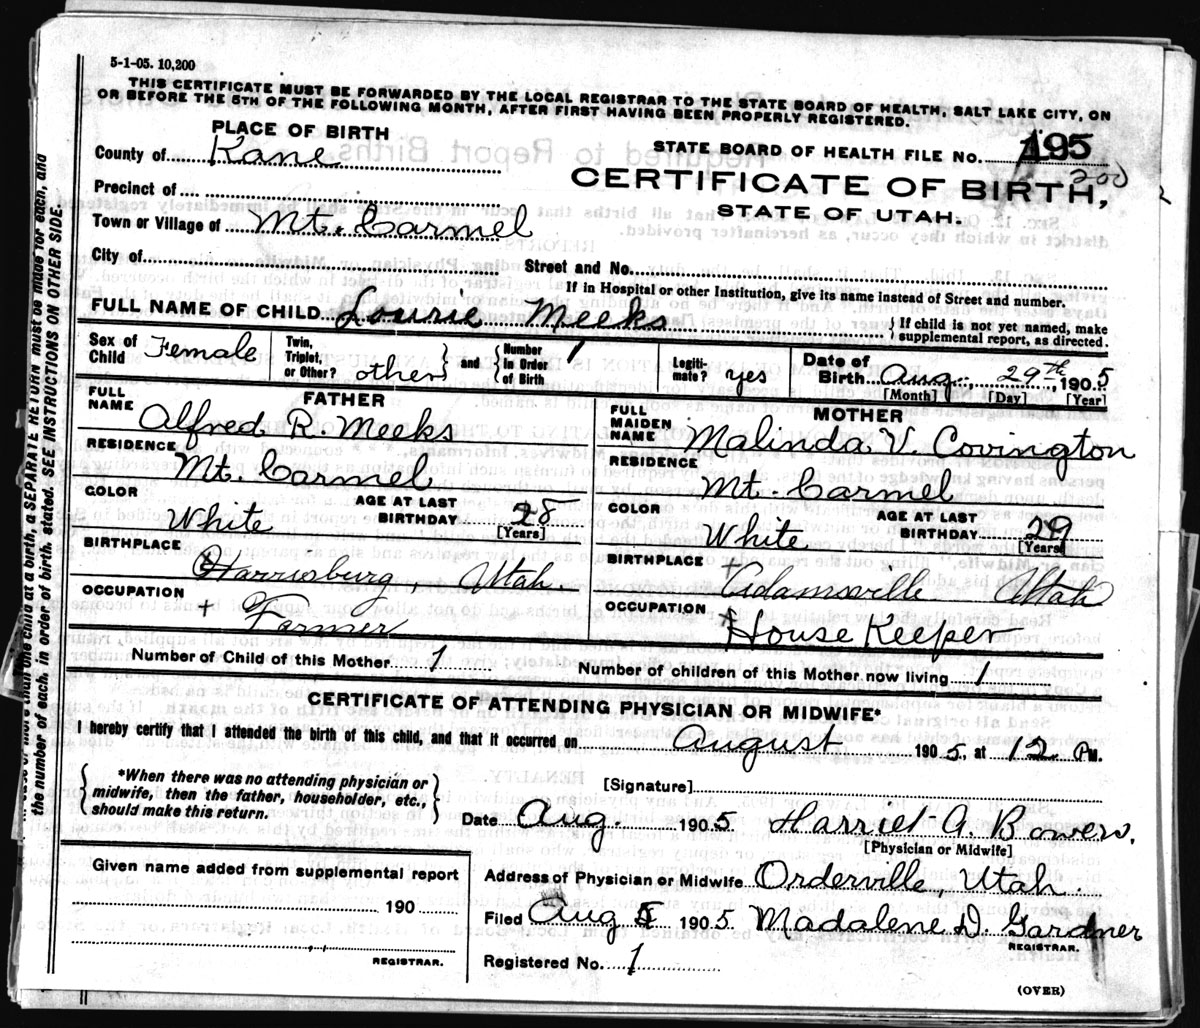 5-1-05. 10,200
THIS CERTIFICATE MUST BE FORWARDED BY THE LOCAL REGISTRAR TO THE STATE BOARD OF HEALTH, SALT LAKE CITY, ON
OR BEFORE THE 5TH OF THE FOLLOWING MONTH, AFTER FIRST HAVING BEEN PROPERLY REGISTERED.
PLACE OF BIRTH
County of Kane
Precinct of
Town or Village of Mt. Carmel
City of
STATE BOARD OF HEALTH FILE No. 195
200
CERTIFICATE OF BIRTH,
STATE OF UTAH.
Street and No.
If in Hospital or other Institution, give its name instead of Street and number.
FULL NAME OF CHILD Lourie Meeks { If child is not yet named, make supplemental report, as directed.
Sex of Child Female Twin, Triplet, or Other? other } and { Number in Order of Birth 1 Legitimate? yes Date of Birth Aug., 29th 1905
[Month] [Day] [Year]
FATHER
FULL NAME Alfred R. Meeks
RESIDENCE Mt. Carmel
COLOR White AGE AT LAST BIRTHDAY 28 [Years]
BIRTHPLACE Harrisburg, Utah
OCCUPATION + Farmer
MOTHER
FULL MAIDEN NAME Malinda V. Covington
RESIDENCE Mt. Carmel
COLOR White AGE AT LAST BIRTHDAY 29 [Years]
BIRTHPLACE + Adamsville Utah
OCCUPATION + House Keeper
Number of Child of this Mother 1 Number of children of this Mother now living 1
CERTIFICATE OF ATTENDING PHYSICIAN OR MIDWIFE*
I hereby certify that I attended the birth of this child, and that it occurred on August 1905, at 12 PM.
{ *When there was no attending physician or midwife, then the father, householder, etc., should make this return. }
[Signature]
Date Aug. 1905 Harriet A. Bowers.
[Physician or Midwife]
Given name added from supplemental report
190
REGISTRAR.
Address of Physician or Midwife Orderville, Utah.
Filed Aug 1905 Madalene D. Gardner
REGISTRAR.
Registered No. 1
(OVER)
the number of each, in order of birth, stated. SEE INSTRUCTIONS ON OTHER SIDE.
more than one child at a birth, a SEPARATE RETURN must be made for each, and